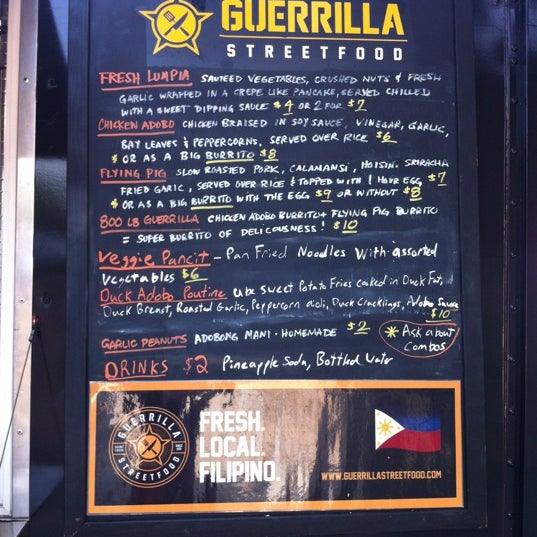 GUERRILLA
STREETFOOD
FRESH LUMPIA SAUTEED VEGETABLES, CRUSHED NUTS & FRESH
GARLIC WRAPPED IN A CREPE LIKE PANCAKE, SERVED CHILLED
WITH A SWEET DIPPING SAUCE $4 OR 2 FOR $7
CHICKEN ADOBO CHICKEN BRAISED IN SOY SAUCE, VINEGAR, GARLIC,
BAY LEAVES & PEPPERCORNS. SERVED OVER RICE $6
* OR AS A BIG BURRITO $8
FLYING PIG SLOW ROASTED PORK, CALAMANSI, HOISIN. SRIRACHA
FRIED GARIC, SERVED OVER RICE & TOPPED WITH 1 HOUR EGG $7
* OR AS A BIG BURRITO WITH THE EGG $9 OR WITHOUT $8
800 LB GUERRILLA CHICKEN ADOBO BURRITO + FLYING PIG BURRITO
= SUPER BURRITO OF DELICOUSNESS! $10
Veggie Pancit - Pan Fried Noodles With assorted
Vegetables $6
Duck Adobo Poutine Ube Sweet Potato Fries cooked in Duck Fat,
Duck Breast, Roasted Garlic, Peppercorn aioli, Duck Cracklings, Adobo Sauce
$10
GARLIC PEANUTS ADOBONG MANI - HOMEMADE $2
* Ask about
Combos
DRINKS $2 Pineapple Soda, Bottled Water
GUERRILLA
STREETFOOD
FRESH.
LOCAL.
FILIPINO.
WWW.GUERRILLASTREETFOOD.COM